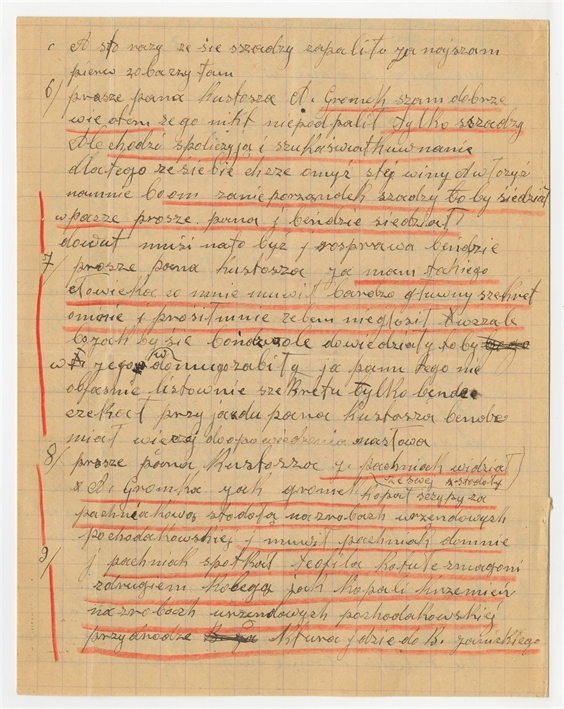 c A sto razy ze sie szadzy zapalito ja najszam
pierw zobaczytam
6/ prasze pana kustosza A. Gromek szam dobrze
wie otem zego nikt niepodpalit tylko szadzy
Ale chodzi spolicyja i szuka swiatkuw nanie
dlatego ze siebie chcze omyć stej winy otwlozyć
namnie bo om zanieporządek szadzy to by siedział
wpacze prosze pana j bendzie siedział
dowut musi nato być j rosprawa bendzie
7/ prosze pana kustosza ja mam takiego
cłowieka co mnie muwił bardzo głuwny szekret
omnie i prosiłmnie zebem niegłosił
bojach by sie dowiedziały toby
jego zabiły ja panu tego nie
objasnie listownie szekretu tylko bende
czekał przyjazdu pana kustosza bende
miał wiencej doopowiedzenia nastowa
8/ prosze pana Kustosza j pachniak widział
ze swej stodoły
A. Gromka jak gromek kopał sczypy za
pachniakową stodołą nazrobach urzendowych
pochodakowskiej j muwił pachniak domnie
9/ j pachniak spotkał teofila kotułozmagoni
zdrugiem kobegą jak kopali krzemień
nazrobach urzendowych pochodakowskiej
przydrodze ktura jdzie do B. janickiego